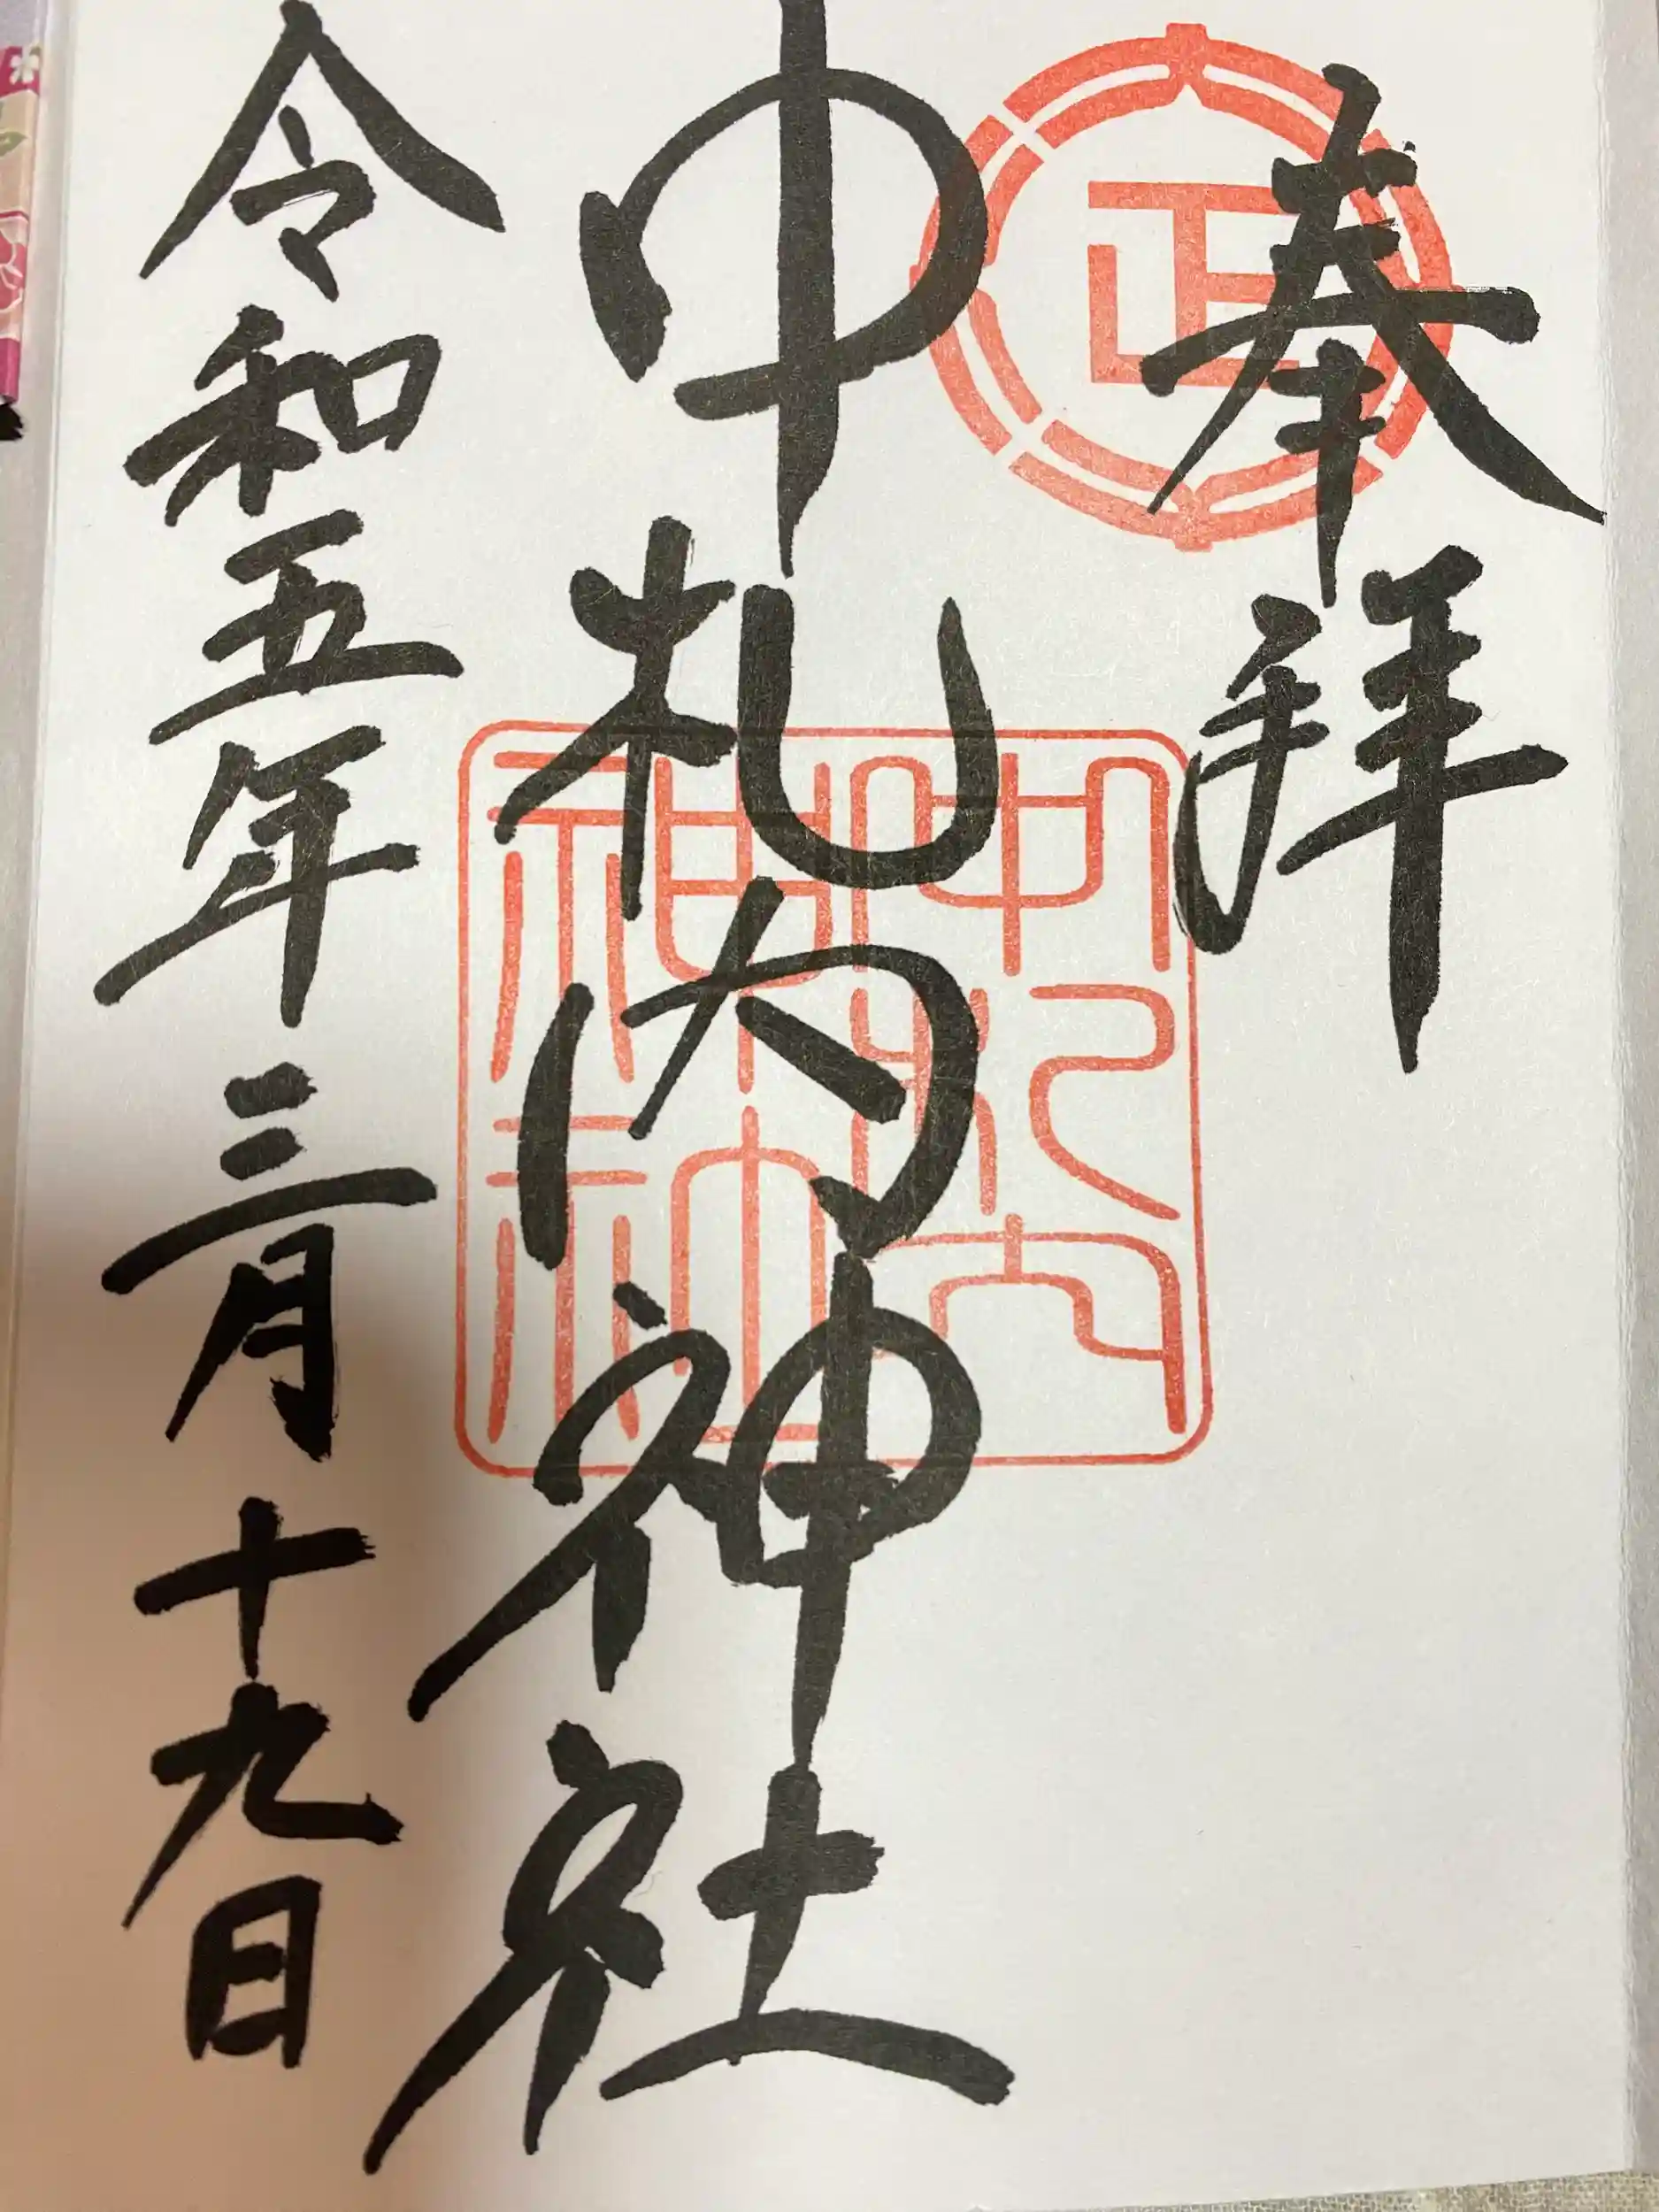 奉拝
正
中札内神社
中札内
神社
令和五年三月十九日